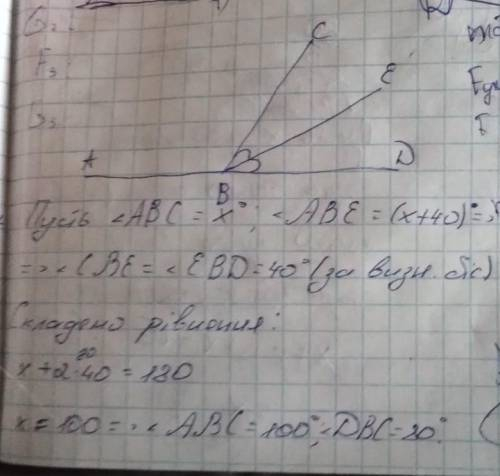 G₂
F₃
C
E
A
B
D
Пусть ∠ABC = x°; ∠ABE = (x+40)° =>
=> ∠CBE = ∠EBD = 40° (за визн. біс)
Складемо рівняння:
x + 2·40 = 180
x = 100 => ∠ABC = 100°, ∠DBC = 20°.